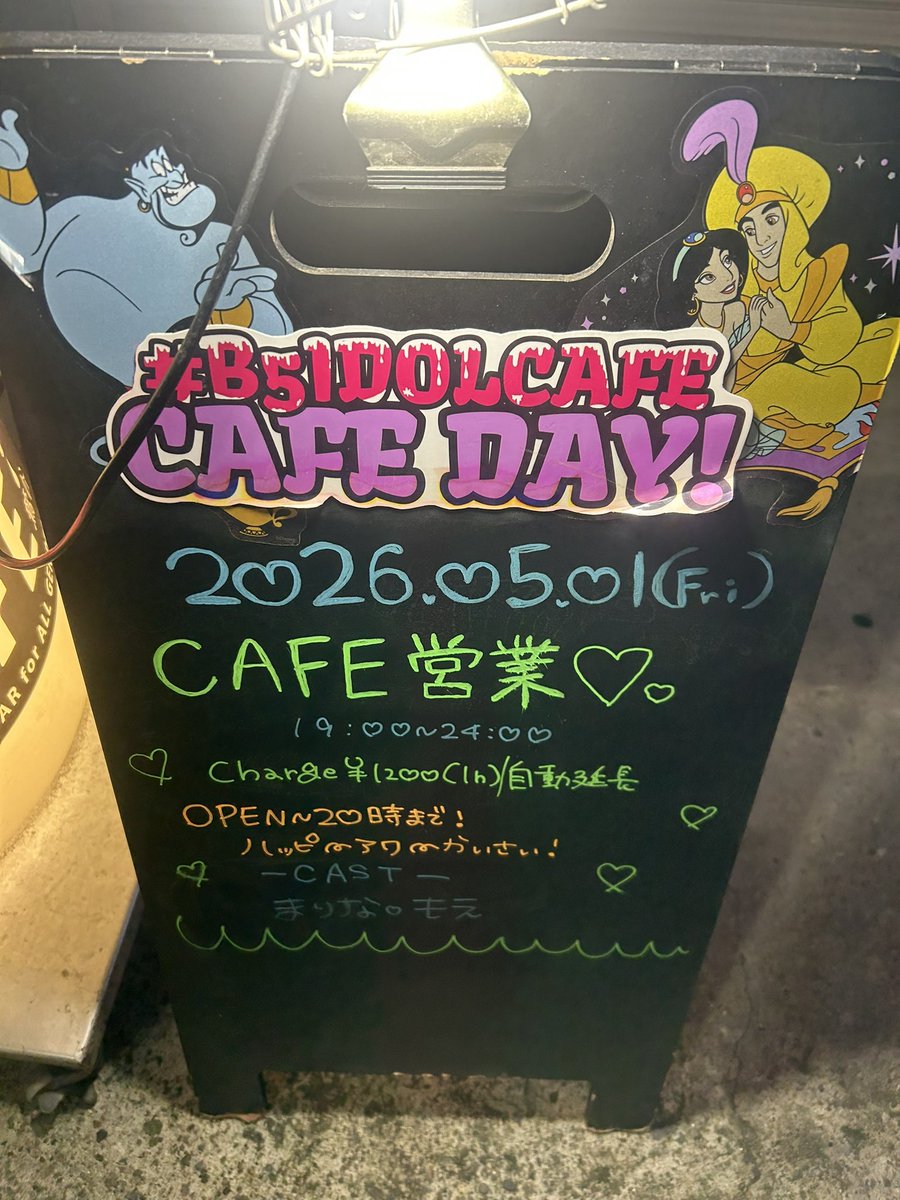 #B5IDOLCAFE
CAFE DAY!
2026.05.01(Fri)
CAFE 営業♡♡
19:00~24:00
Charge ¥1200(1h)/自動延長
OPEN~20時まで!
ハッピーアワーかいさい!
-CAST-
まりな♡もえ
AR for ALL